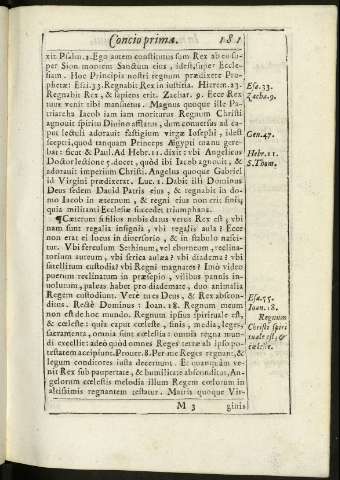 Concio prima. 181
xit Psalm. 2. Ego autem constitutus sum Rex ab eo su-
per Sion montem Sanctum eius, idest, super Eccle-
siam. Hoc Principis nostri regnum prædixere Pro-
phetæ: Esai. 33. Regnabit Rex in iustitia. Hierem. 23.
Regnabit Rex, & sapiens erit. Zachar. 9. Ecce Rex
tuus venit tibi mansuetus. Magnus quoque ille Pa-
triarcha Iacob iam iam moriturus Regnum Christi
agnouit spiritu Diuino afflatus, dum conuersus ad ca-
put lectuli adorauit fastigium virgæ Iosephi, idest
sceptri, quod tanquam Princeps Ægypti manu gere-
bat: sicut & Paul. Ad Hebr. 11. dixit: vbi Angelicus
Doctor lectione 5. docet, quòd ibi Iacob agnouit, &
adorauit imperium Christi. Angelus quoque Gabriel
id Virgini prædixerat. Luc. 1. Dabit illi Dominus
Deus sedem Dauid Patris eius, & regnabit in do-
mo Iacob in æternum, & regni eius non erit finis;
quia militanti Ecclesiæ succedet triumphans.
¶Cæterum si filius nobis datus verus Rex est, vbi
nam sunt regalia insignia, vbi regalis aula? Ecce
non erat ei locus in diuersorio, & in stabulo nasci-
tur. Vbi ferculum Sethinum, vel eburneum, reclina-
torium aureum, vbi serica aulæa? vbi diadema? vbi
satellitum custodia? vbi Regni magnates? Imò video
puerum reclinatum in præsepio, vilibus pannis in-
uolutum, paleas habet pro diademate, duo animalia
Regem custodiunt. Verè tu es Deus, & Rex abscon-
ditus. Rectè Dominus: Ioan. 18. Regnum meum
non est de hoc mundo. Regnum ipsius spirituale est,
& cœleste: quia caput cœleste, finis, media, leges,
sacramenta, omnia sunt cœlestia: omnia regna mun-
di excellit: adeò quòd omnes Reges terræ ab ipso po-
testatem accipiunt. Prouer. 8. Per me Reges regnant, &
legum conditores iusta decernunt. Et quanquàm ve-
nit Rex sub paupertate, & humilitate absconditus, An-
gelorum cœlestis melodia illum Regem cœlorum in
altissimis regnantem testatur. Mitris quoque Vir-
M 3 ginis
Esa. 33.
Zacha. 9.
Gen. 47.
Hebr. 11.
S. Thom.
Esa. 55.
Ioan. 18.
Regnum
Christi spiri
tuale est, &
cœleste.